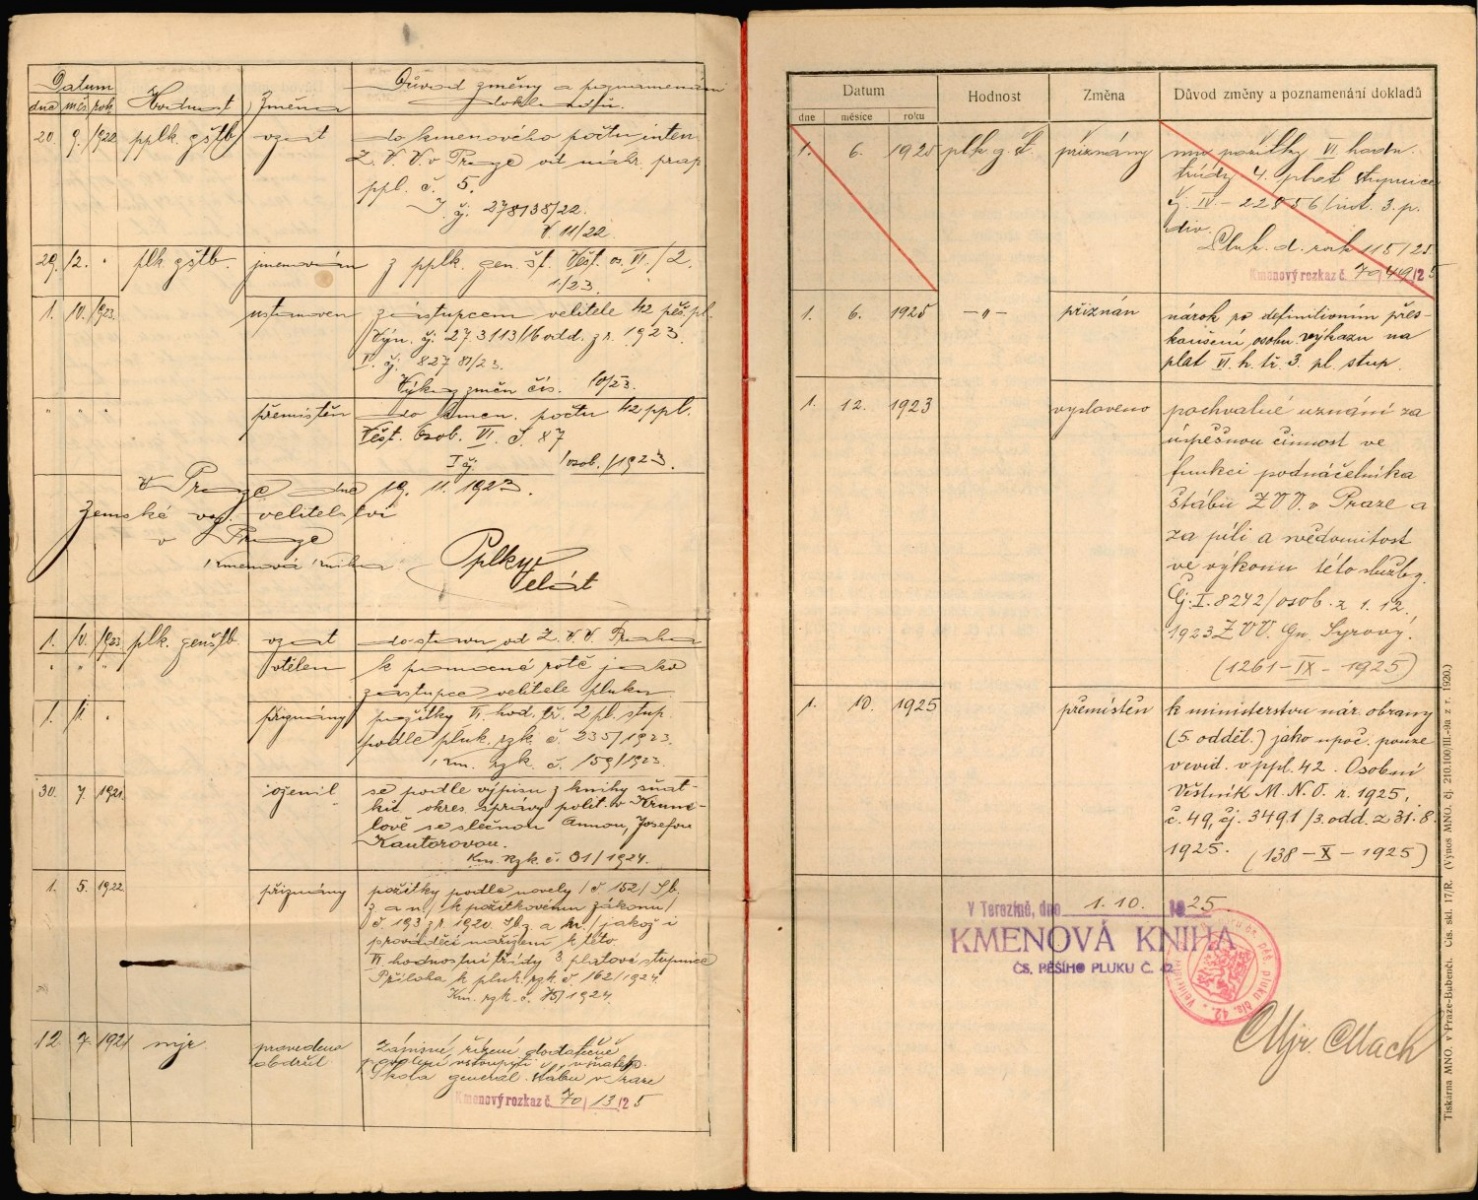 Datum
dne měs. rok Hodnost Změna Důvod změny a poznamenání
dokladů.
20. 9. 1922 pplk. gštb vzat do kmenového počtu inten.
Z. V. V. v Praze od náhr. prap.
ppl. č. 5.
čj. 278138/22.
V. 11/22
29. 12. " plk. gštb. jmenován z pplk. gen. št. Věst. os. VI./2.
1/23.
1. IV. 1923 ustanoven zástupcem velitele 42 pěš. pl.
Výn. čj. 273113/16 odd. z r. 1923.
V. čj. 82781/23.
Výkaz změn čís. 10/23.
" " " přemístěn do kmen. počtu 42 ppl.
Věst. Osob. VI. č. 87
I čj. /osob./1923.
V Praze dne 19. 11. 1923.
Zemské voj. velitelství
v Praze
kmenová kniha
1. IV. 1923 plk. genštb. vzat do stavu od Z. V. V. Praha
" " " vtělen k pomocné rotě jako
zástupce velitele pluku.
1. 11. " přiznány požitky VI. hod. tř. 2 pl. stup.
podle pluk. rzk. č. 235/1923.
km. rzk. č. 159/1923.
30. 7. 1921. oženil se podle výpisu z knihy sňat-
ků okres. správy polit. v Krum-
lově se slečnou Annou, Josefou
Kantorovou.
Km. Rzk. č. 31/1924.
1. 5. 1922 přiznány požitky podle novely / č 152/ Sb.
z a n / k požitkovému zákonu /
č. 193 z r. 1920 Sb. z. a n. / jakož i
prováděcí nařízení k této
VI hodnostní třídy 3 platové stupnice
Příloha k pluk. rzk. č. 162/1924.
Km. rzk. č. 75/1924.
12. 7. 1921 mjr. provedeno
obdržel
Škola generál. štábu v Praze
Kmenový rozkaz č. 70/13/25
Datum Hodnost Změna Důvod změny a poznamenání dokladů
dne měsíce roku
1. 6. 1925 plk. g. š. přiznány mu požitky VI hodn.
třídy 4. plat. stupnice
čj. IV. - 22856/int. 3. p.
div.
Pluk. d. rozk 115/25
Kmenový rozkaz č. 70/49/25
1. 6. 1925 —"— přiznán nárok po definitivním přes-
koušení osobn. výkazu na
plat VI. h. tř. 3. pl. stup.
1. 12. 1923 vysloveno pochvalné uznání za
úspěšnou činnost ve
funkci podnáčelníka
štábu Z V V. v Praze a
za píli a svědomitost
ve výkonu této služby.
Čj. I. 8242/osob. z 1. 12.
1923 Z V V. Gn. Syrový.
(1261 - IX - 1925)
1. 10. 1925 přemístěn k ministerstvu nár. obrany
(5. odděl.) jako upoč. pouze
v evid. v ppl. 42. Osobní
Věstník M. N. O. r. 1925,
č. 49, čj. 3491/3. odd. z 31. 8.
1925. (138 - X - 1925)
V Terezíně, dne 1. 10. 1925.
KMENOVÁ KNIHA
ČS. PĚŠÍHO PLUKU Č. 42
Mjr. Mach
Tiskárna MNO. v Praze-Bubenči. Čís. skl. 17/R. (Výnos MNO. čj. 210.100/III.-9a z r. 1920.)